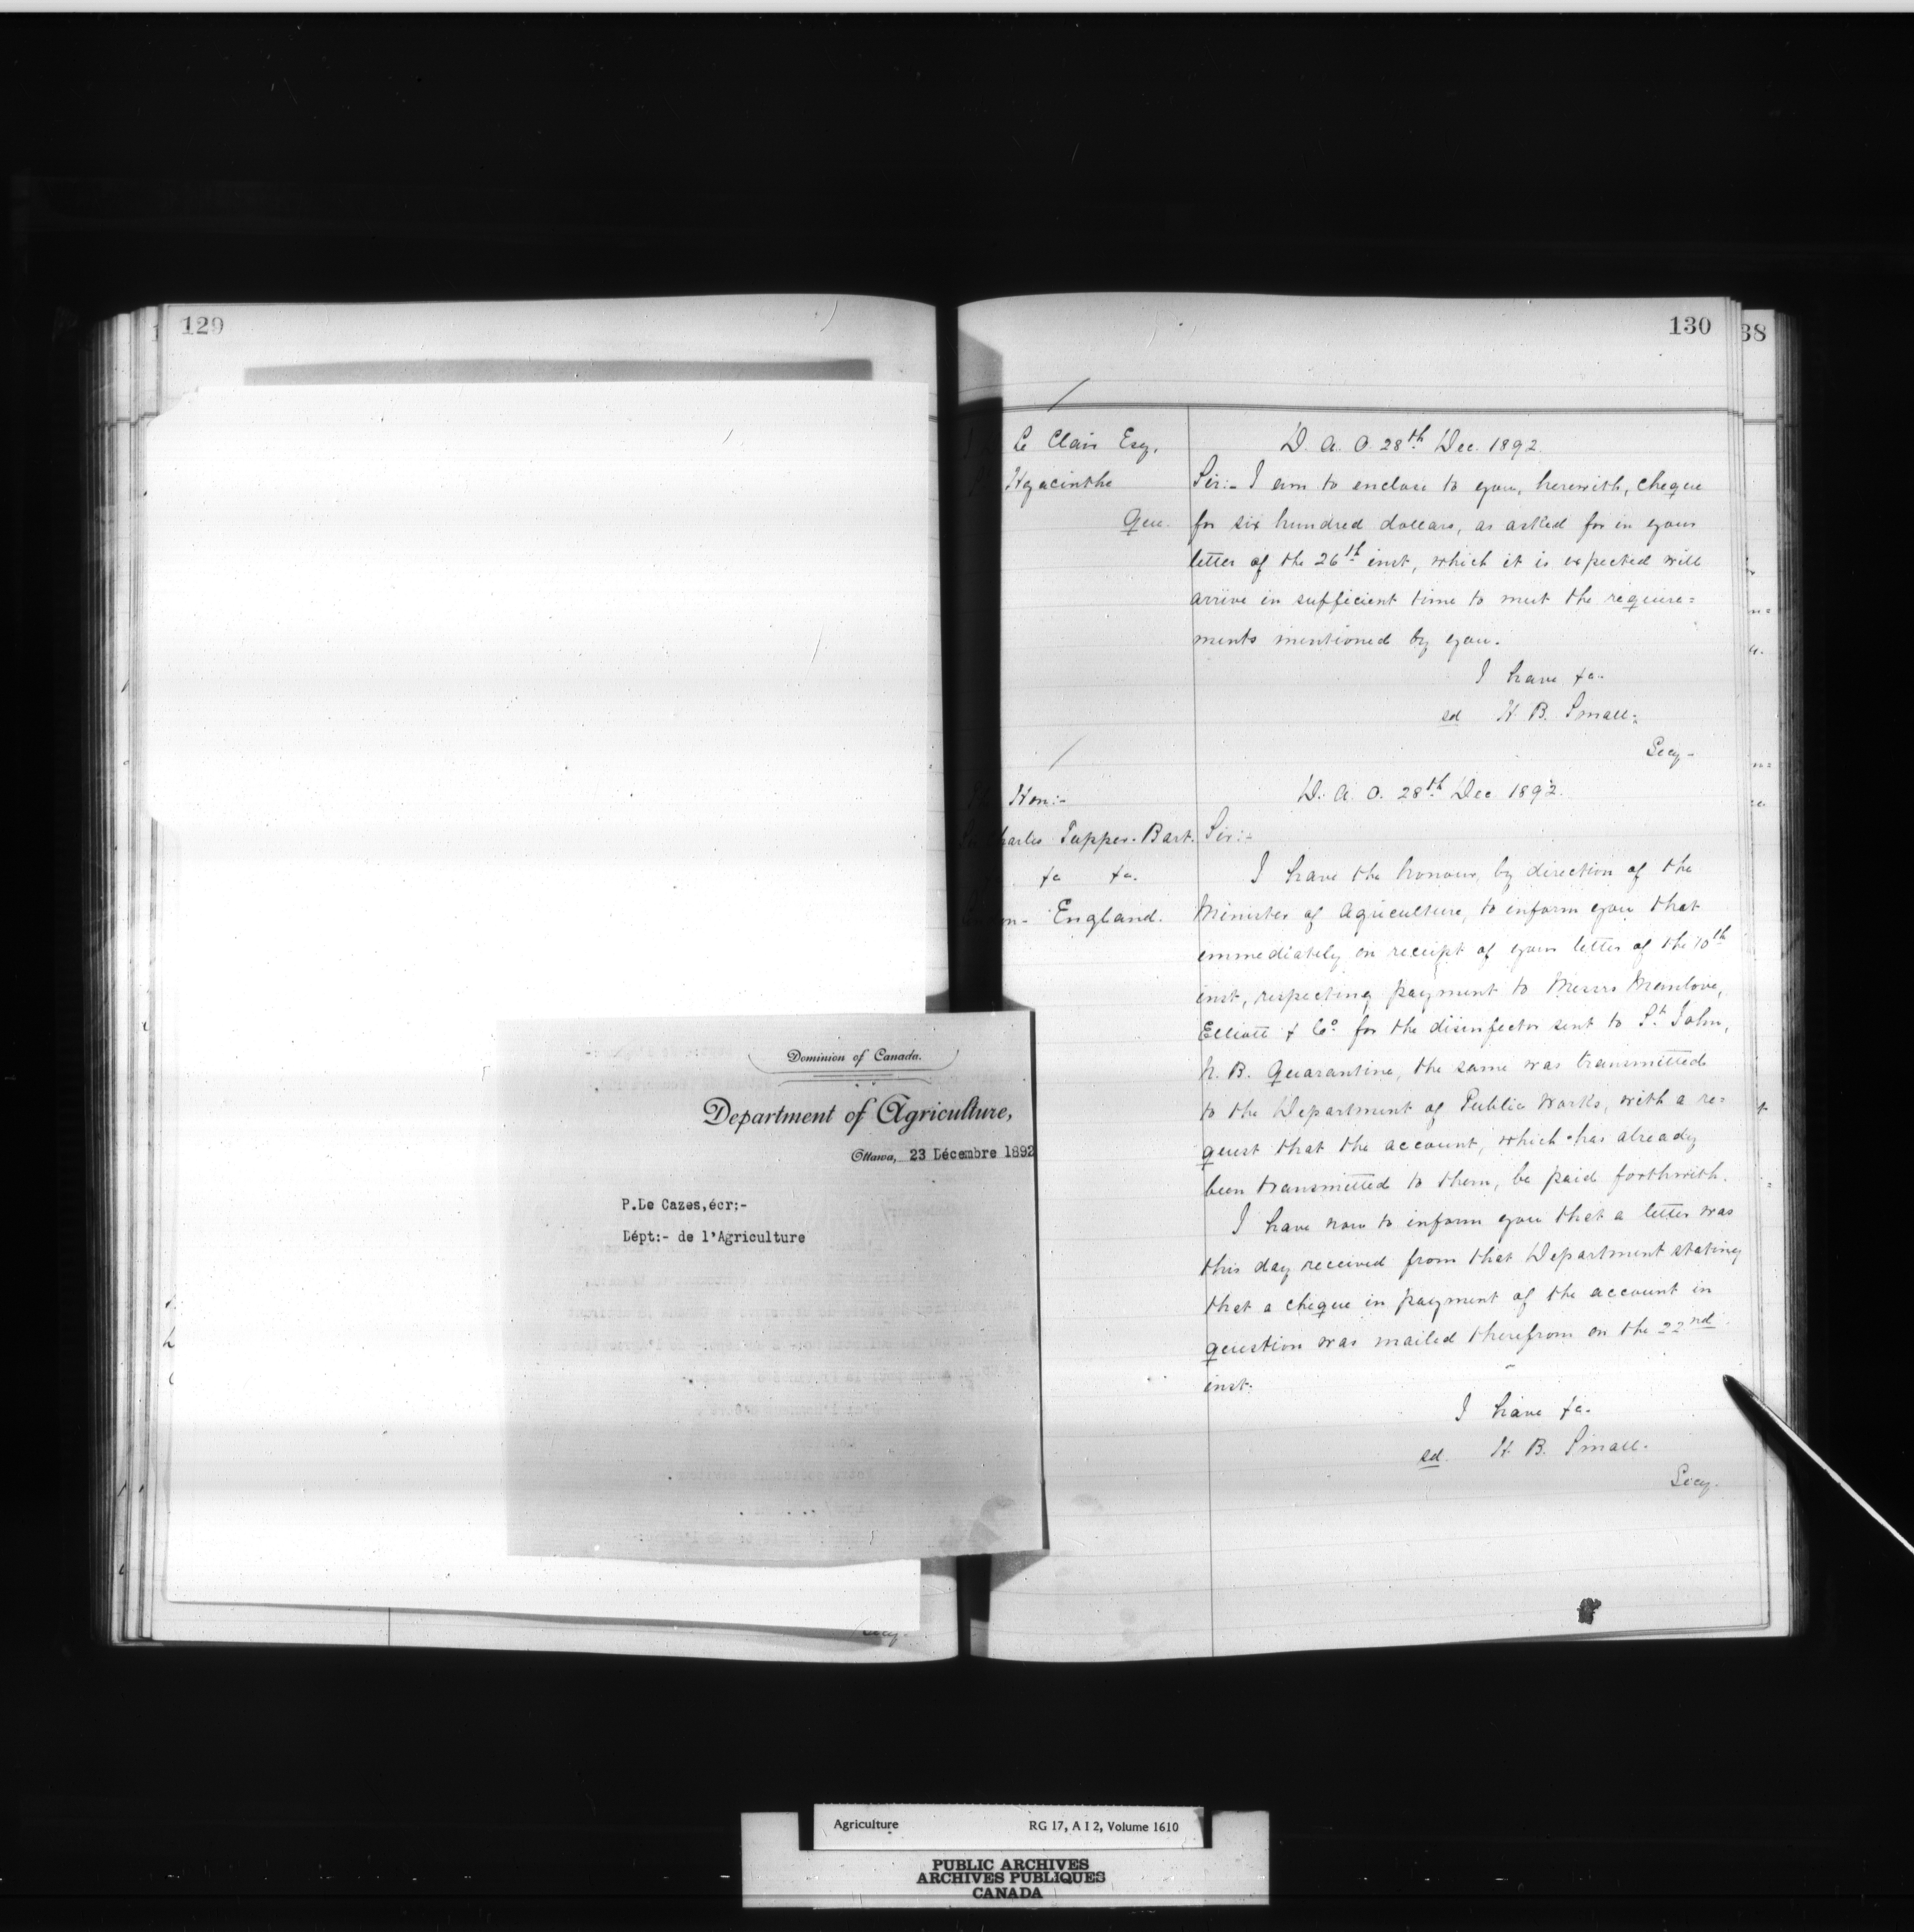 129
Dominion of Canada.
Department of Agriculture,
Ottawa, 23 Décembre 1892
P.De Cazes,écr:-
Dépt:- de l'Agriculture
Secy.
130
38
Le Clair Esq.
Hyacinthe
Que.
D. A. O. 28th Dec. 1892.
Sir:- I am to enclose to you, herewith, cheque
for six hundred dollars, as asked for in your
letter of the 26th inst, which it is expected will
arrive in sufficient time to meet the require=
ments mentioned by you.
I have &c.
sd H. B. Small.
Secy-
Hon:-
Charles Tupper. Bart.
&c &c.
England.
D. A. O. 28th Dec 1892.
Sir:-
I have the honour, by direction of the
Minister of Agriculture, to inform you that
immediately on receipt of your letter of the 10th
inst, respecting payment to Messrs Manlove,
Elliott & Co. for the disinfector sent to St. John,
N. B. Quarantine, the same was transmitted
to the Department of Public Works, with a re=
quest that the account, which has already
been transmitted to them, be paid forthwith.
I have now to inform you that a letter was
this day received from that Department stating
that a cheque in payment of the account in
question was mailed therefrom on the 22nd.
inst.
I have &c.
sd. H. B. Small.
Secy.
Agriculture RG 17, A I 2, Volume 1610
PUBLIC ARCHIVES
ARCHIVES PUBLIQUES
CANADA